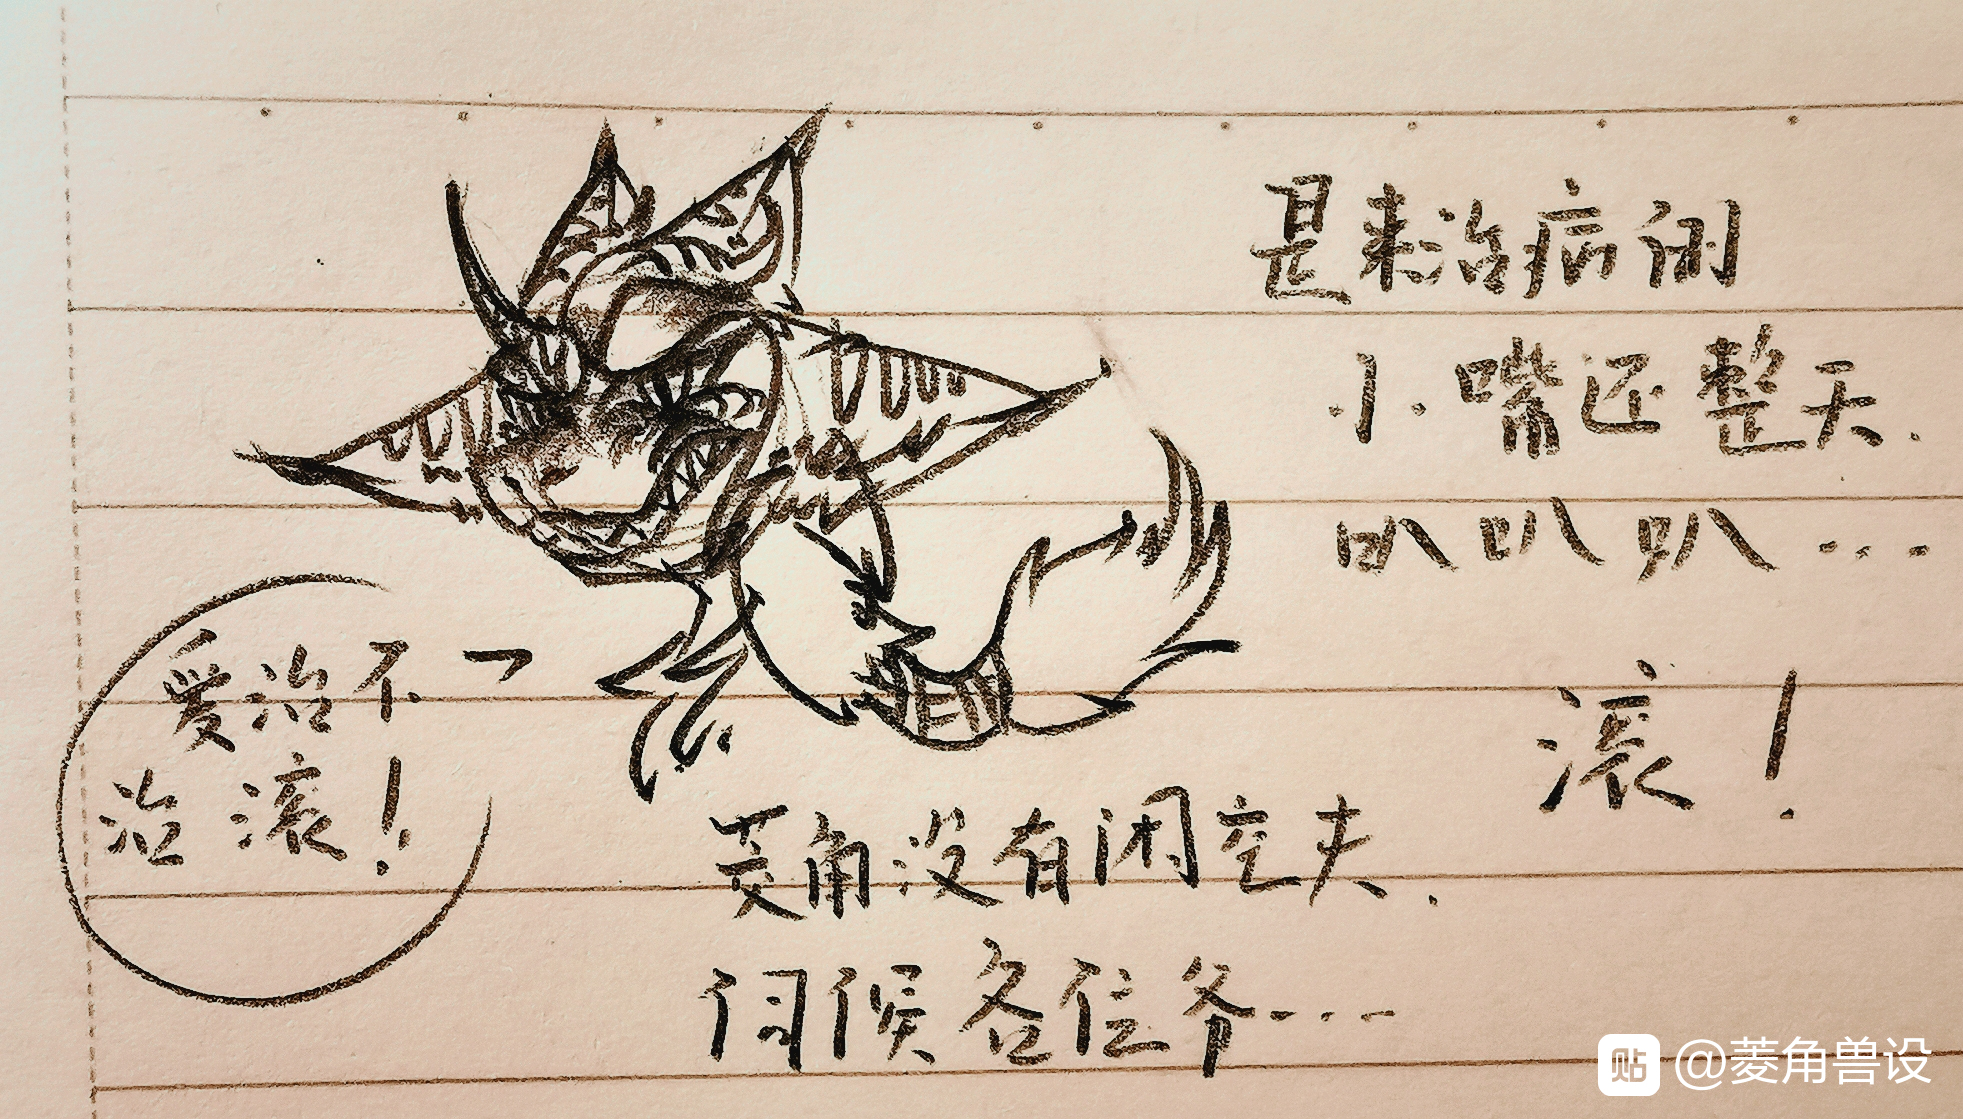 是来治病的
小嘴还整天,
叭叭叭...
滚!
爱治不
治 滚!
菱角没有闲空夫,
伺候各位爷...
贴 @菱角兽设